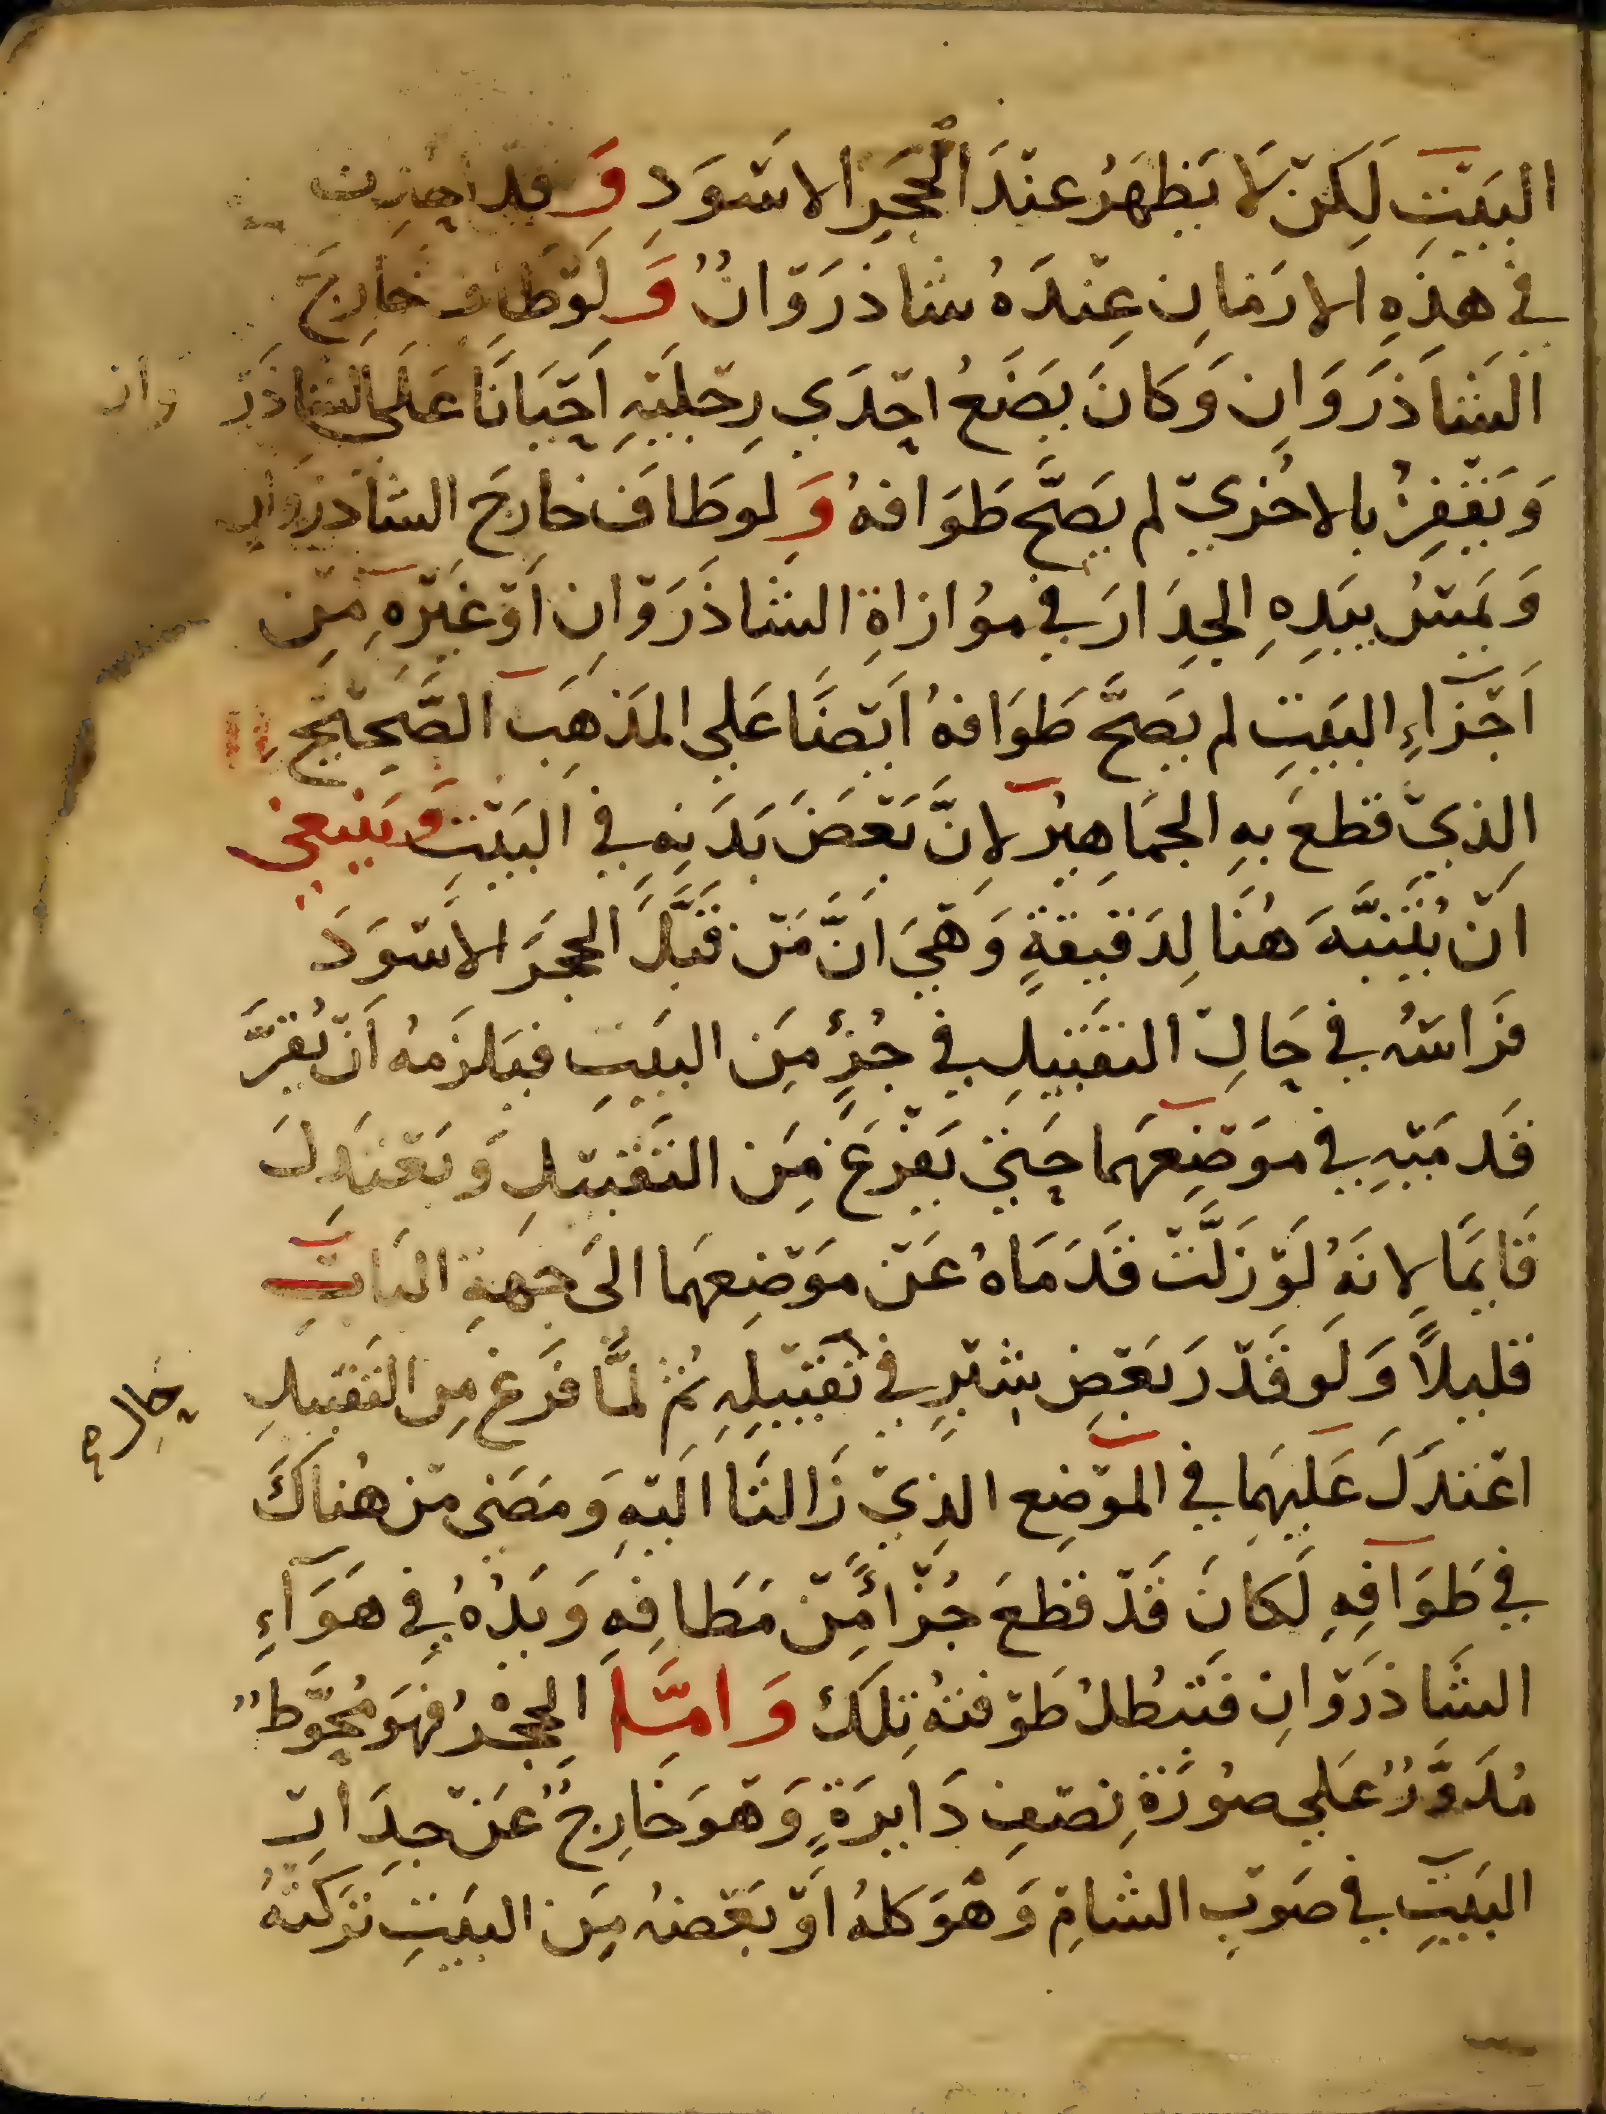 البَيْتِ لَكِنْ لَا يَظْهَرُ عِنْدَ الْحَجَرِ الاسْوَدِ وَقَدْ احدِث
في هَذِهِ الازمَانِ عِنْدَهُ شَاذَرْوَانٌ وَلَوْ طَافَ خَارِجَ
الشَاذَرَوَانِ وَكَانَ يَضَعُ احْدَي رِجْلَيْهِ اَحْيَانًا عَلَى الشاذَرْ وان
وَيَقْفِزُ بالاخُرْيْ لم يَصحَّ طَوَافهُ وَلو طَافَ خارجَ الشاذروان
وَيَمَسُّ بيَدِهِ الجِدَارَ في مُوَازاةِ الشاذَرْوَانِ اَوْ غَيْرِهِ مِنْ
اَجْزَاءِ البَيتِ لم يصَحَّ طَوَافهُ اَيْضًا عَلي المَذهَبِ الصَّحِيْحِ
الذِيْ قطعَ بهِ الجمَاهِيْرُ لانَّ بَعْضَ بَدَنِهِ فِي البَيْتِ وَيَنبَغي
اَنْ يُتَنَبَّهَ هُنَا لِدَقيقةٍ وَهْيَ اَنَّ مَنْ قَبَّلَ الحجَرَ الاَسْوَدَ
فرَاسُهُ في حَالِ التقبيلِ في جُزءٍ مِنَ البَيتِ فيَلزَمهُ اَنْ يُقرَّ
قَدمَيْهِ في مَوْضِعِهمَا حَتيٰ يَفْرغَ مِنَ التَقْبيْلِ وَيَعْتَدِلَ
قَايمًا لانهُ لَوْ زَلَّتْ قَدَمَاهُ عَنْ مَوْضِعِهمَا الىَ جِهَةِ البَابِ
قليلاً وَلَو قَدْرَ بَعْضِ شِبْرٍ في تَقْبيْلِهِ ثمَّ لمَّا فَرَغ مِن التَقبيلِ
حَال
اعْتدَلَ عَليهِمَا في المَوْضِعِ الذِيْ زَالتَا اليْهِ وَمَضَى مِنْ هُناكَ
في طَوَافِهِ لَكانَ قَدْ قطعَ جُزْأً مِنْ مَطَافِهِ وَيَدُهُ في هَوَآءِ
الشَاذَرْوَانِ فَتبْطلُ طَوْفتهُ تِلكَ وَامَّا الحِجْرُ فهوَ مُحَوَّطٌ
مُدَوَّرٌ عَلي صُورَةِ نِصْفِ دَايرَةٍ وَهْوَ خَارجٌ عَنْ جِدَارِ
البَيْتِ في صَوبِ الشَامِ وَهْوَ كلهُ اَوْ بَعْضهُ مِنَ البَيتِ تَرَكتهُ